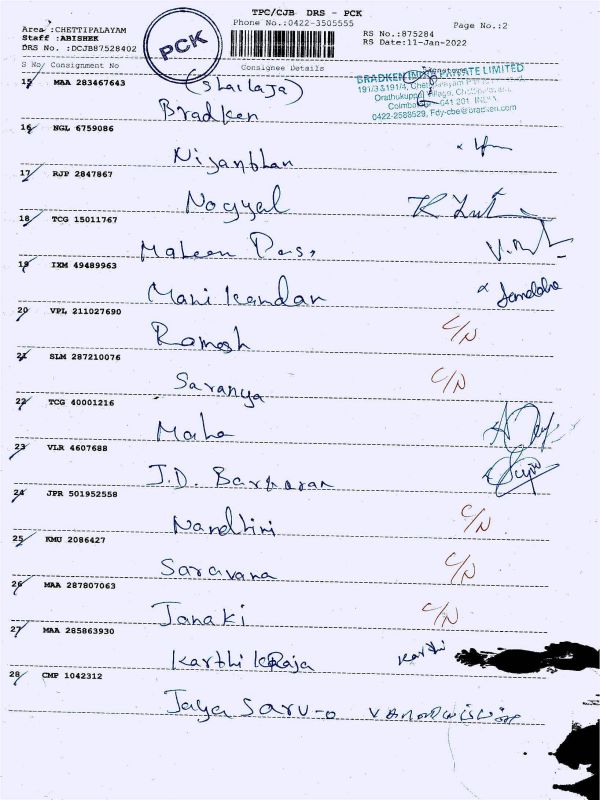 TPC/CJB DRS - PCK
Area :CHETTIPALAYAM
Phone No.:0422-3505555
Page No.:2
Staff :ABISHEK
RS No.:875284
DRS No. :DCJB87528402
RS Date:11-Jan-2022
PCK
S No/ Consignment No Consignee Details
15 MAA 283467643 (Shailaja)
Bradken
BRADKEN INDIA PRIVATE LIMITED
641 201
0422-2588529, Fdy-cbe@bradken.com
16 NGL 6759086
Nijanthan
17 RJP 2847867
Nogyal
18 TCG 15011767
19 IXM 49489963
Manikandan
20 VPL 211027690
Ramesh C/N
21 SLM 287210076
Saranya C/N
22 TCG 40001216
Maha
23 VLR 4607688
J.D.
24 JPR 501952558
Nandhini C/N
25 KMU 2086427
Saravana C/N
26 MAA 287807063
Janaki C/N
27 MAA 285863930
Karthik Raja Karthi
28 CMP 1042312
Jaya